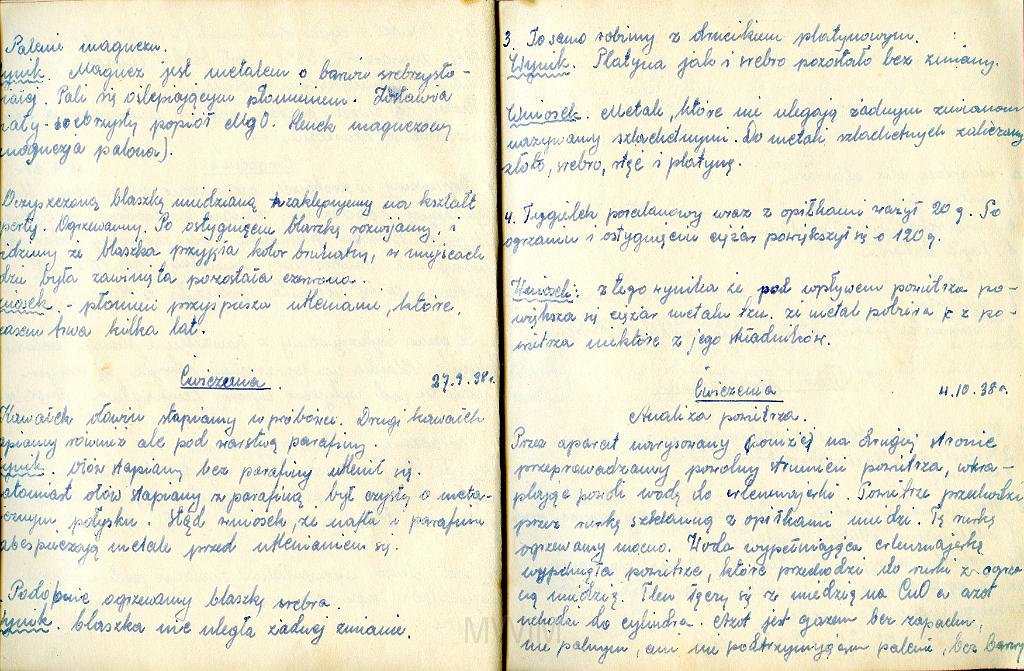 Palenie magnezu.
Magnez jest metalem o barwie srebrzysto-
Pali się oślepiającym płomieniem. Zostawia
srebrzysty popiół MgO. tlenek magnezowy
magnezja palona).
Oczyszczoną blaszkę miedzianą zaklepujemy na kształt
Ogrzewamy. Po ostygnięciu blaszkę rozwijamy, i
że blaszka przyjęła kolor brunatny, w miejscach
była zawinięta pozostała czerwona.
- płomień przyśpiesza utlenianie, które,
czasem trwa kilka lat.
Ćwiczenia. 27.9.38r.
Kawałek ołowiu stapiamy w probówce. Drugi kawałek
również ale pod warstwą parafiny.
Ołów stapiany bez parafiny utlenił się.
ołów stapiany z parafiną był czysty o meta-
licznym połysku. Stąd wniosek, że nafta i parafina
zabezpieczają metale przed utlenianiem się.
Podobnie ogrzewamy blaszkę srebra.
blaszka nie uległa żadnej zmianie.
3. To samo robimy z drucikiem platynowym.
Wynik. Platyna jak i srebro pozostało bez zmiany.
Wniosek. Metale, które nie ulegają żadnym zmianom
nazywamy szlachetnymi. Do metali szlachetnych zaliczamy
złoto, srebro, rtęć i platynę.
4. Tygielek porcelanowy wraz z opiłkami ważył 20 g. Po
ogrzaniu i ostygnięciu ciężar powiększył się o 120 g.
Wniosek: z tego wynika że pod wpływem powietrza po-
większa się ciężar metalu tzn. że metal pobiera z po-
wietrza niektóre z jego składników.
Ćwiczenia 4.10.38r.
Analiza powietrza.
Przez aparat narysowany (poniżej) na drugiej stronie
przeprowadzamy powolny strumień powietrza, wkra-
plając powoli wodę do erlenmajerki. Powietrze przechodzi
przez rurkę szklanną z opiłkami miedzi. Tę rurkę
ogrzewamy mocno. Woda wypełniająca erlenmajerkę
wypchnęła powietrze, które przechodzi do rurki z ogrza-
ną miedzią. Tlen łączy się z miedzią na CuO a azot
uchodzi do cylindra. Azot jest gazem bez zapachu,
nie palnym, ani nie podtrzymującym palenie, bez barwy
MWM